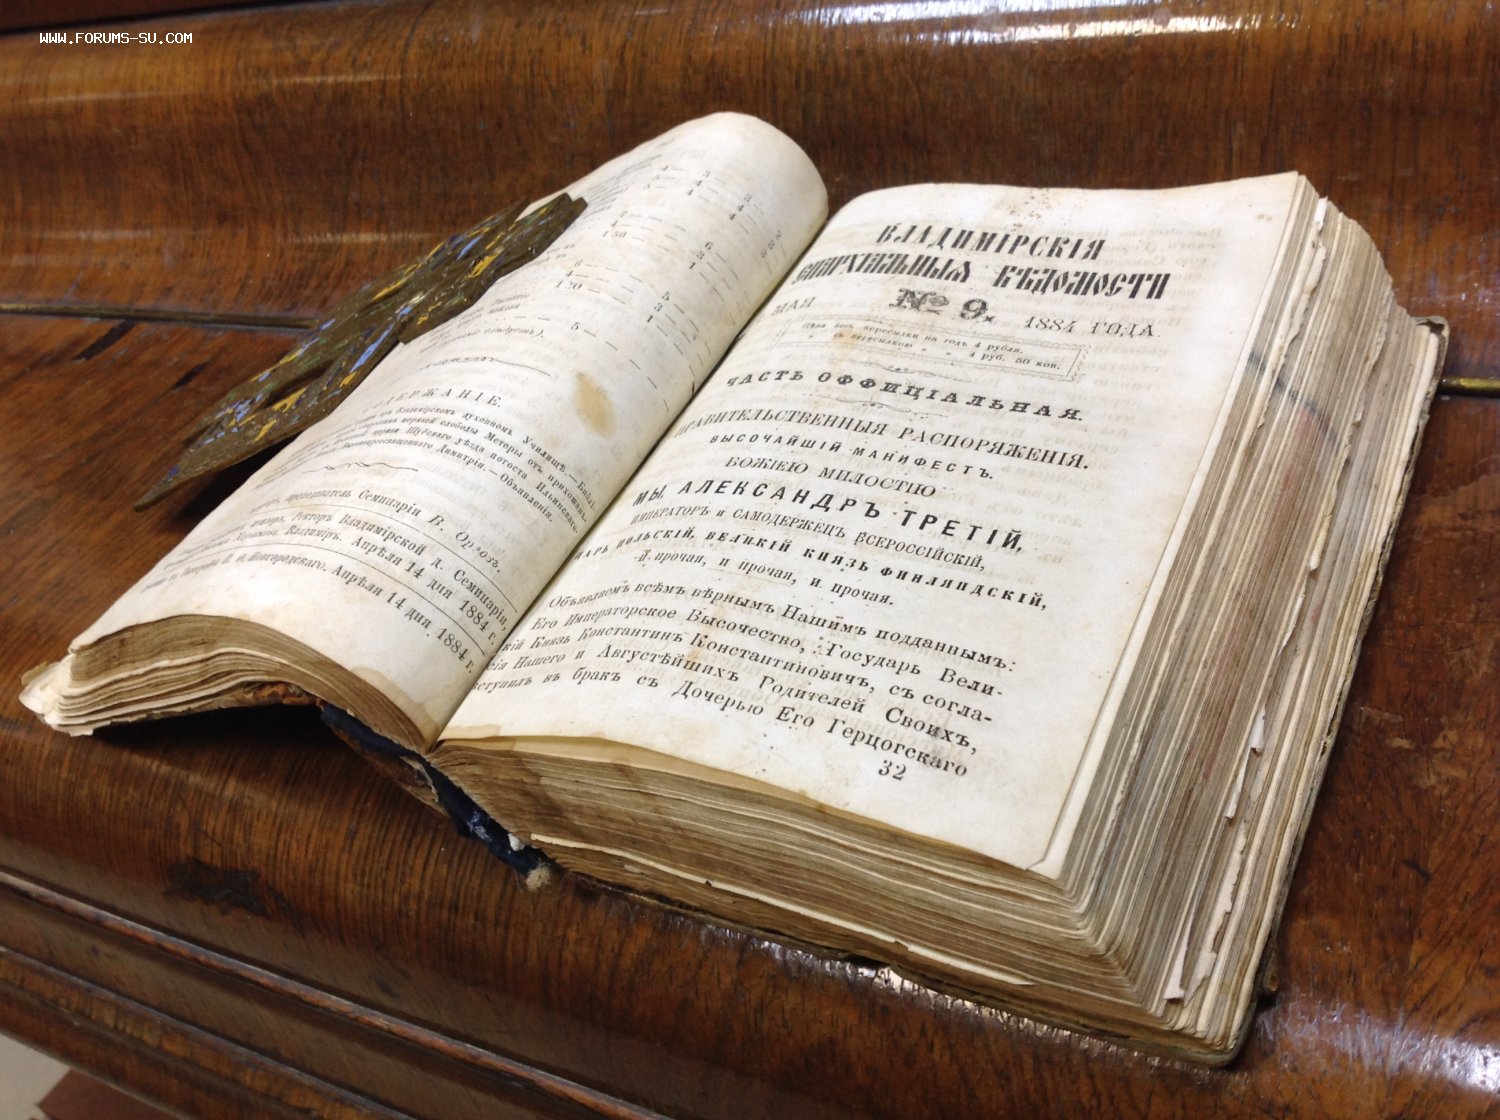 WWW.FORUMS-SU.COM
СОДЕРЖАНІЕ.
Владимірскомъ духовномъ Училищѣ.—Библі-
слободы Мстеры отъ прихожанъ.
Шуйскаго уѣзда погоста Ильинскаго.
Димитрія.—Объявленія.
преподаватель Семинаріи В. Орловъ.
Ректоръ Владимірской д. Семинаріи,
Владиміръ. Апрѣля 14 дня 1884 г.
Новгородскаго. Апрѣля 14 дня 1884 г.
ВЛАДИМІРСКІЯ
ЕПАРХІАЛЬНЫЯ ВѢДОМОСТИ
МАЯ № 9. 1884 ГОДА
Цѣна безъ пересылки на годъ 4 рубля.
" съ пересылкою " " 4 руб. 50 коп.
ЧАСТЬ ОФФИЦІАЛЬНАЯ.
ПРАВИТЕЛЬСТВЕННЫЯ РАСПОРЯЖЕНІЯ.
ВЫСОЧАЙШІЙ МАНИФЕСТЪ.
БОЖІЕЮ МИЛОСТІЮ
МЫ, АЛЕКСАНДРЪ ТРЕТІЙ,
ИМПЕРАТОРЪ и САМОДЕРЖЕЦЪ ВСЕРОССІЙСКІЙ,
ЦАРЬ ПОЛЬСКІЙ, ВЕЛИКІЙ КНЯЗЬ ФИНЛЯНДСКІЙ,
и прочая, и прочая, и прочая.
Объявляемъ всѣмъ вѣрнымъ Нашимъ подданнымъ:
Его Императорское Высочество, Государь Вели-
кій Князь Константинъ Константиновичъ, съ согла-
сія Нашего и Августѣйшихъ Родителей Своихъ,
вступилъ въ бракъ съ Дочерью Его Герцогскаго
32